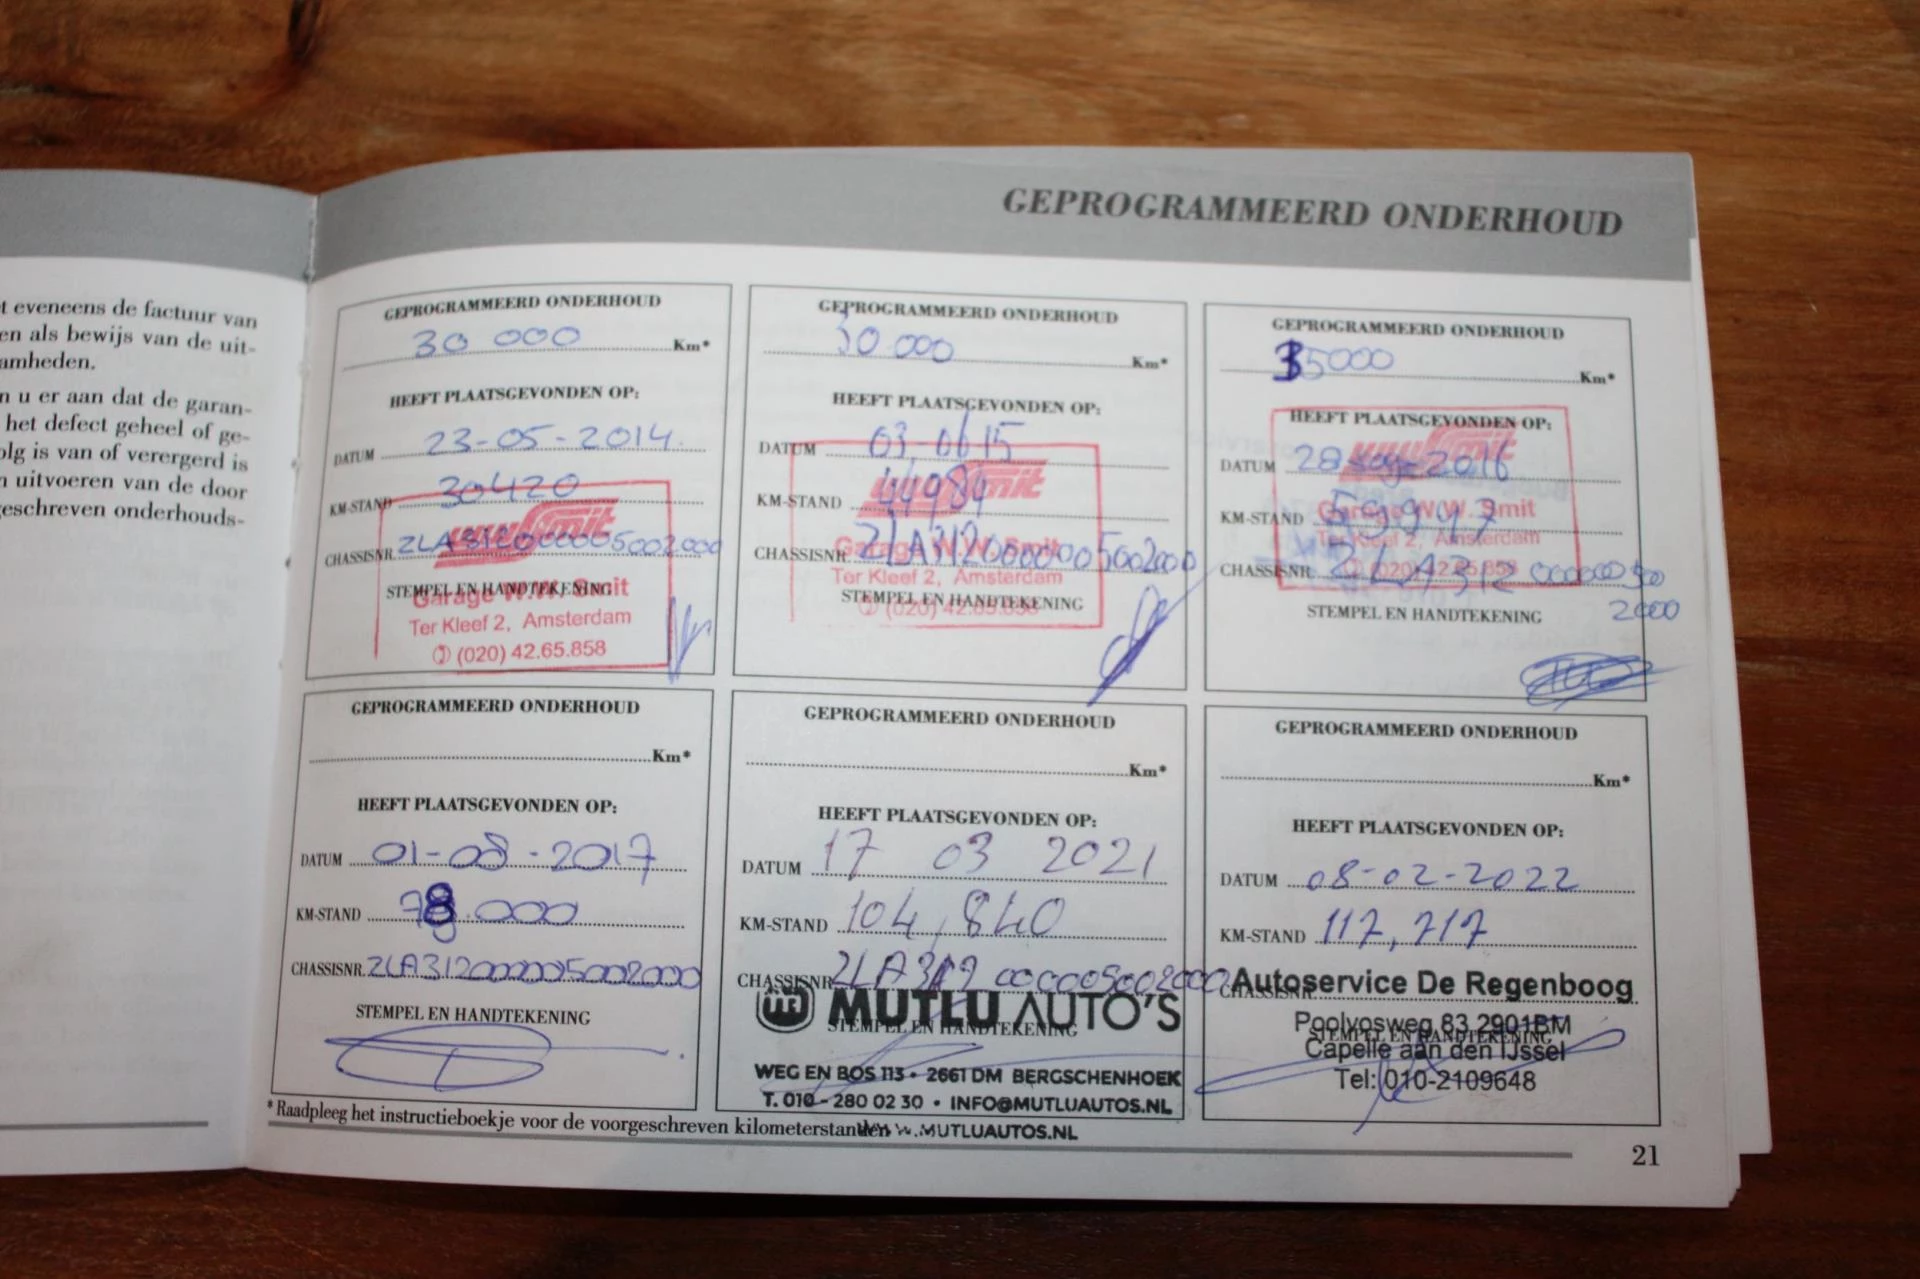 t eveneens de factuur van
en als bewijs van de uit-
amheden.
n u er aan dat de garan-
het defect geheel of ge-
olg is van of verergerd is
n uitvoeren van de door
geschreven onderhouds-
GEPROGRAMMEERD ONDERHOUD
GEPROGRAMMEERD ONDERHOUD
30 000 Km*
HEEFT PLAATSGEVONDEN OP:
DATUM 23-05-2014.
KM-STAND 30420
CHASSISNR. ZLA312000005002000
STEMPEL EN HANDTEKENING
WW Smit
Garage W.W. Smit
Ter Kleef 2, Amsterdam
(020) 42.65.858
GEPROGRAMMEERD ONDERHOUD
30 000 Km*
HEEFT PLAATSGEVONDEN OP:
DATUM 03-06 15
KM-STAND 44984
CHASSISNR. ZLA3120000005002000
STEMPEL EN HANDTEKENING
WW Smit
Garage W.W. Smit
Ter Kleef 2, Amsterdam
(020) 42.65.858
GEPROGRAMMEERD ONDERHOUD
35000 Km*
HEEFT PLAATSGEVONDEN OP:
DATUM 28 2016
KM-STAND 53947
CHASSISNR. ZLA312 000000500
2000
STEMPEL EN HANDTEKENING
WW Smit
Garage W.W. Smit
Ter Kleef 2, Amsterdam
(020) 42.65.858
GEPROGRAMMEERD ONDERHOUD
Km*
HEEFT PLAATSGEVONDEN OP:
DATUM 01-08-2017
KM-STAND 78.000
CHASSISNR. ZLA312000005002000
STEMPEL EN HANDTEKENING
GEPROGRAMMEERD ONDERHOUD
Km*
HEEFT PLAATSGEVONDEN OP:
DATUM 17 03 2021
KM-STAND 104,840
CHASSISNR. ZLA312 000005002000
STEMPEL EN HANDTEKENING
MUTLU AUTO'S
WEG EN BOS 113 • 2661 DM BERGSCHENHOEK
T. 010 - 280 02 30 • INFO@MUTLUAUTOS.NL
WWW.MUTLUAUTOS.NL
GEPROGRAMMEERD ONDERHOUD
Km*
HEEFT PLAATSGEVONDEN OP:
DATUM 08-02-2022
KM-STAND 117,717
CHASSISNR.
STEMPEL EN HANDTEKENING
Autoservice De Regenboog
Poolvosweg 83 2901BM
Capelle aan den IJssel
Tel: 010-2109648
* Raadpleeg het instructieboekje voor de voorgeschreven kilometerstanden
21